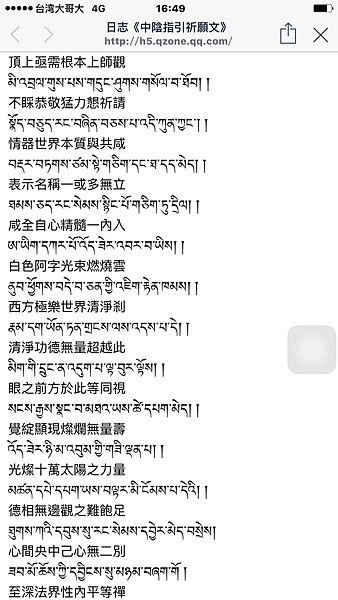 台湾大哥大 4G 16:49
日志《中陰指引祈願文》
http://h5.qzone.qq.com/
頂上亟需根本上師觀
མི་འབྲལ་གུས་པས་གདུང་ཤུགས་གསོལ་བ་ཐོབ། །
不睬恭敬猛力懇祈請
སྣོད་བཅུད་རང་བཞིན་བཅས་པ་འདི་ཀུན་ཀྱང་། །
情器世界本質與共咸
བརྡར་བཏགས་ཙམ་སྟེ་གཅིག་དང་ཐ་དད་མེད། །
表示名稱一或多無立
ཐམས་ཅད་རང་སེམས་སྙིང་པོ་གཅིག་ཏུ་དྲིལ། །
咸全自心精髓一內入
ཨ་ཡིག་དཀར་པོ་འོད་ཟེར་འབར་བ་ཡིས། །
白色阿字光束燃燒雲
ནུབ་ཕྱོགས་བདེ་བ་ཅན་གྱི་འཇིག་རྟེན་ཁམས། །
西方極樂世界清淨剎
རྣམ་དག་ཡོན་ཏན་གྲངས་ལས་འདས་པ་དེ། །
清淨功德無量超越此
མིག་གི་དྲུང་ན་འདུག་པ་ལྟ་བུར་ལྟོས། །
眼之前方於此等同視
སངས་རྒྱས་སྣང་བ་མཐའ་ཡས་ཚེ་དཔག་མེད། །
覺綻顯現燦爛無量壽
འོད་ཟེར་ཉི་མ་འབུམ་གྱི་གཟི་ལྡན་པ། །
光燦十萬太陽之力量
མཚན་དཔེ་དཔག་ཡས་བལྟར་མི་ངོམས་པ་དེའི། །
德相無邊觀之難飽足
ཐུགས་ཀའི་དབུས་སུ་རང་སེམས་དབྱེར་མེད་བསྲེས།
心間央中己心無二別
ཟབ་མོ་ཆོས་ཀྱི་དབྱིངས་སུ་མཉམ་བཞག་གོ །
至深法界性內平等禪